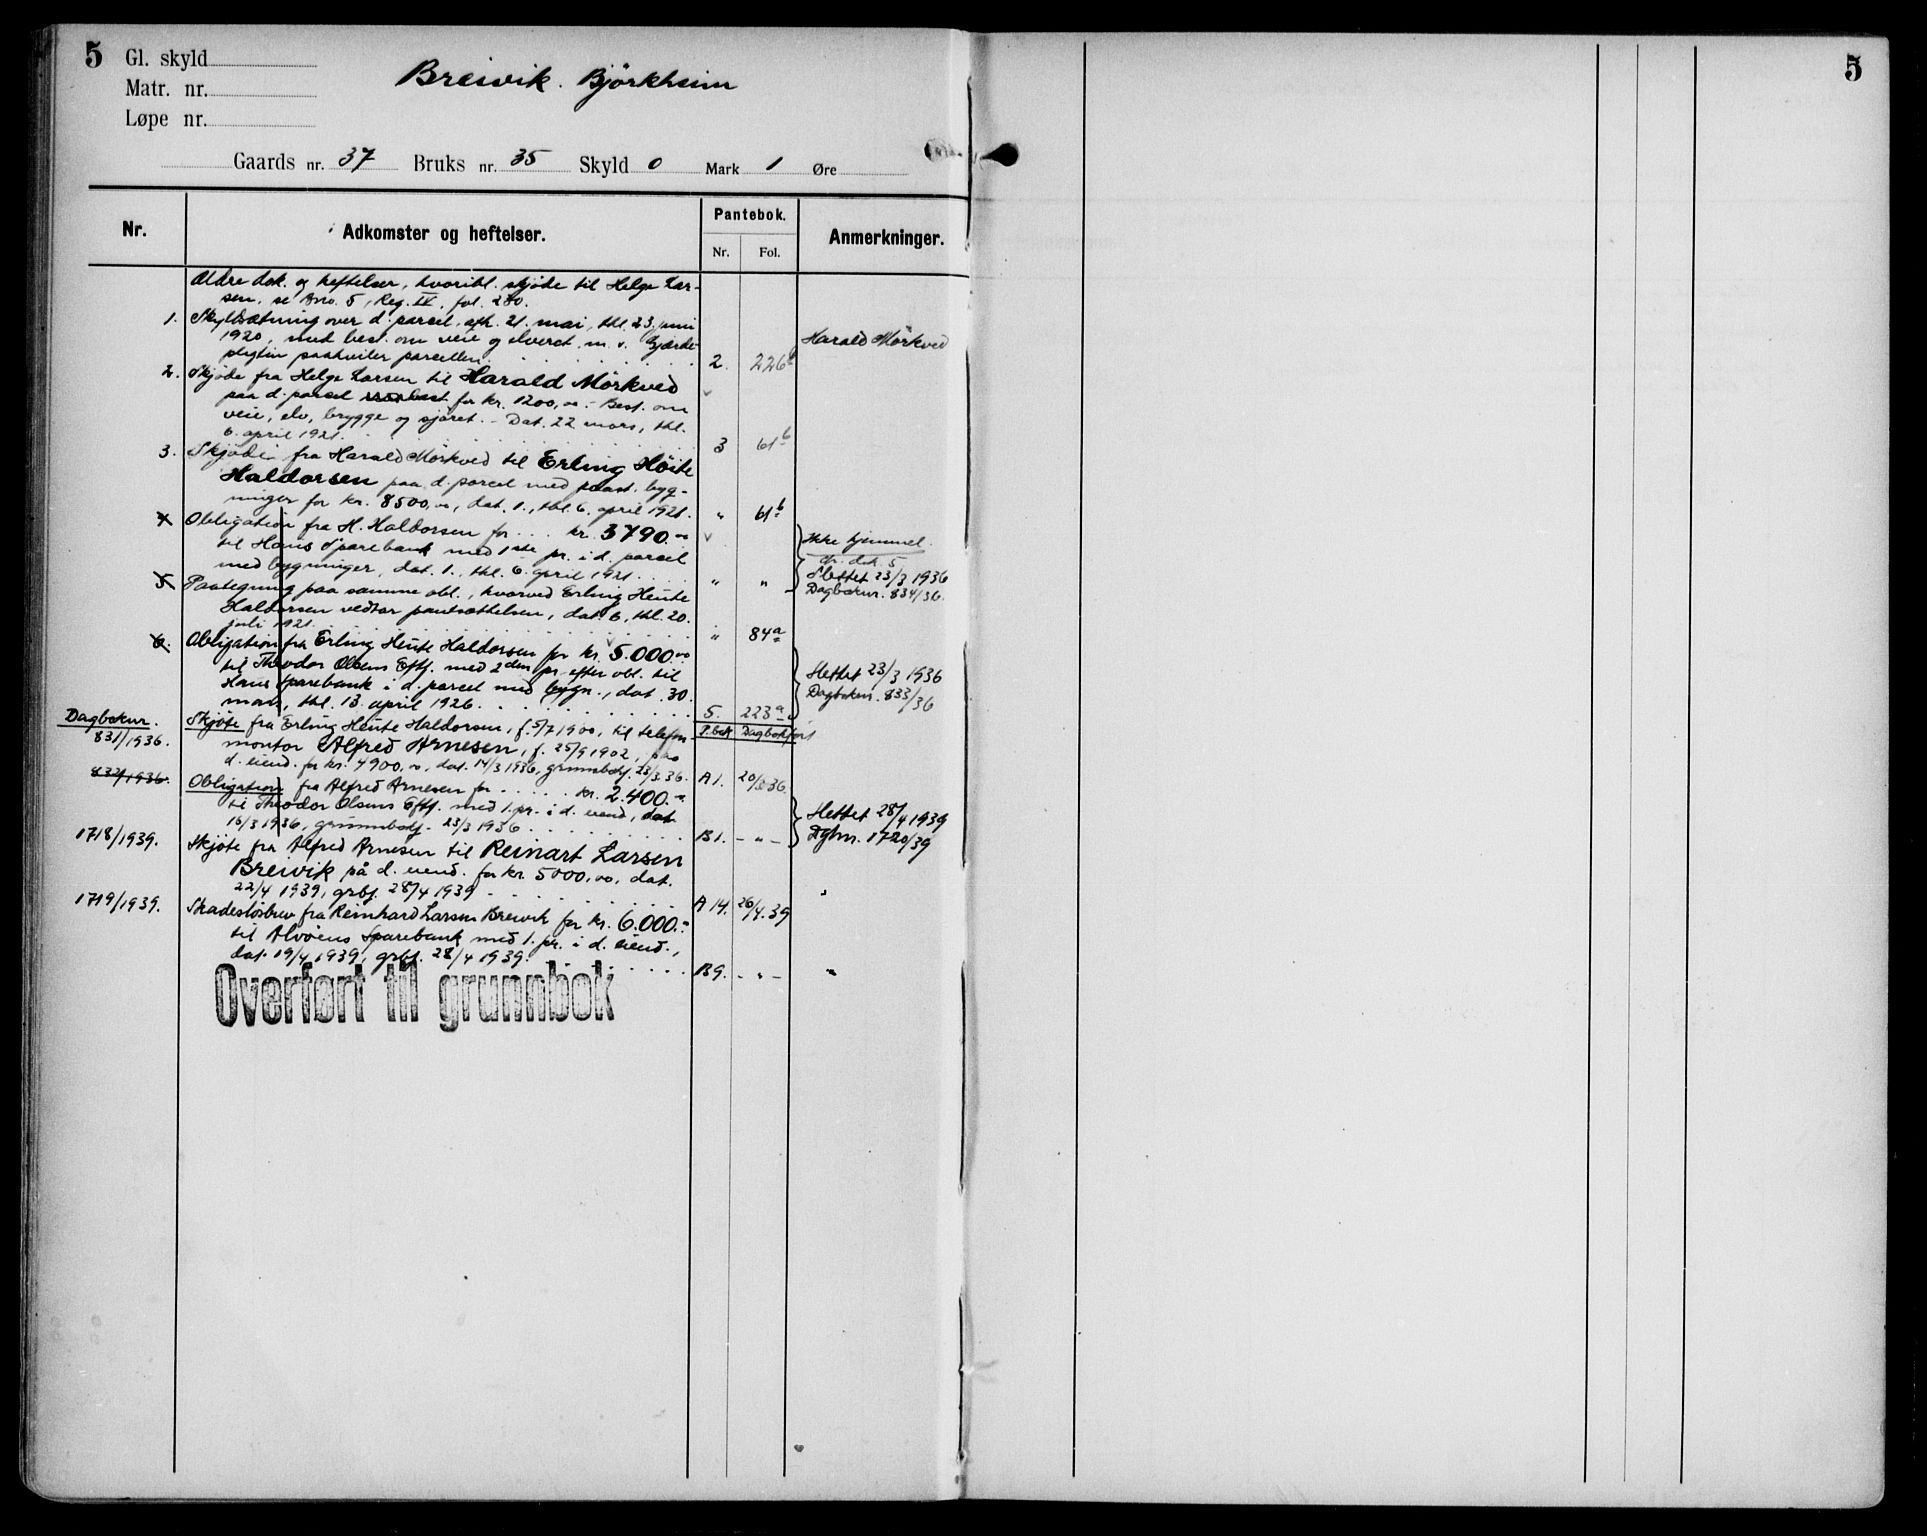 5
Gl. skyld
Matr. nr.
Løpe nr.
Breivik. Björkheim
Gaards nr. 37 Bruks nr. 35 Skyld 0 Mark 1 Øre
5
Nr.
Adkomster og heftelser.
Pantebok.
Nr. Fol.
Anmerkninger.
Ældre dok. og heftelser, hvoribl. skjøte til Helge Lar-
sen, se Ano. 5, Reg. IV, fol. 280.
1. Skyldsætning over d. parcel, afh. 21. mai, thl. 23. juni
1920, med best. om veie og elveret m. v. Gjærde-
pligtin paahviler parcellen. 2. 226b Harald Mörkved
2. Skjøde fra Helge Larsen til Harald Mörkved
paa d. parcel for kr. 1200,00.- Best. om
veie, elv, brygge og sjøret. - Dat. 22 mars, thl.
6. april 1921. 3 61b
3. Skjøde fra Harald Mörkved til Erling Höite
Haldorsen paa d. parcel med paast. byg-
ninger for kr. 8500,00, dat. 1., thl. 6. april 1921. " 61b
4 Obligation fra H. Haldorsen for ... kr. 3790.00
til Haus Sparebank med 1ste pr. i d. parcel
med bygninger, dat. 1., thl. 6. april 1921. " "
Ikke hjemmel.
cfr. dok. 5
Slettet 23/3 1936
Dagboknr. 834/36.
5. Paategning paa samme obl., hvorved Erling Heute
Haldorsen vedtar pantsættelsen, dat. 6., thl. 20.
juli 1921. " 84a
6. Obligation fra Erling Heute Haldorsen for kr. 5.000.00
til Theodor Olsens Eftf. med 2den pr. efter obl. til
Haus Sparebank i d. parcel med bygn., dat. 30.
mars, thl. 13. april 1926. 5. 223a
Slettet 23/3 1936
Dagboknr. 833/36
Dagboknr. P.bok Dagbokført
831/1936. Skjøte fra Erling Heute Haldorsen, f. 5/7 1900, til telefon
montør Alfred Arnesen, f. 25/9 1902, paa
d. eiend. for kr. 4900,00, dat. 14/3 1936, grunnbokf. 23/3 36. A1. 20/3 36.
832/1936. Obligation fra Alfred Arnesen for ..... kr. 2.400.-
til Theodor Olsens Eftf. med 1. pr. i d. eiend, dat
16/3 1936, grunnbokf. 23/3 1936 B1. - " -
Slettet 28/4 1939
Dgbnr. 1720/39
1718/1939. Skjøte fra Alfred Arnesen til Reinart Larsen
Breivik på d. eiend. for kr. 5000,00, dat.
22/4 1939, grbf. 28/4 1939 A 14. 26/4.39
1719/1939. Skadesløsbrev fra Reinhard Larsen Breivik for kr. 6.000.-
til Alvøens Sparebank med 1. pr. i d. eiend.,
dat. 19/4 1939, grbf. 28/4 1939. B9. - " - "
Overført til grunnbok